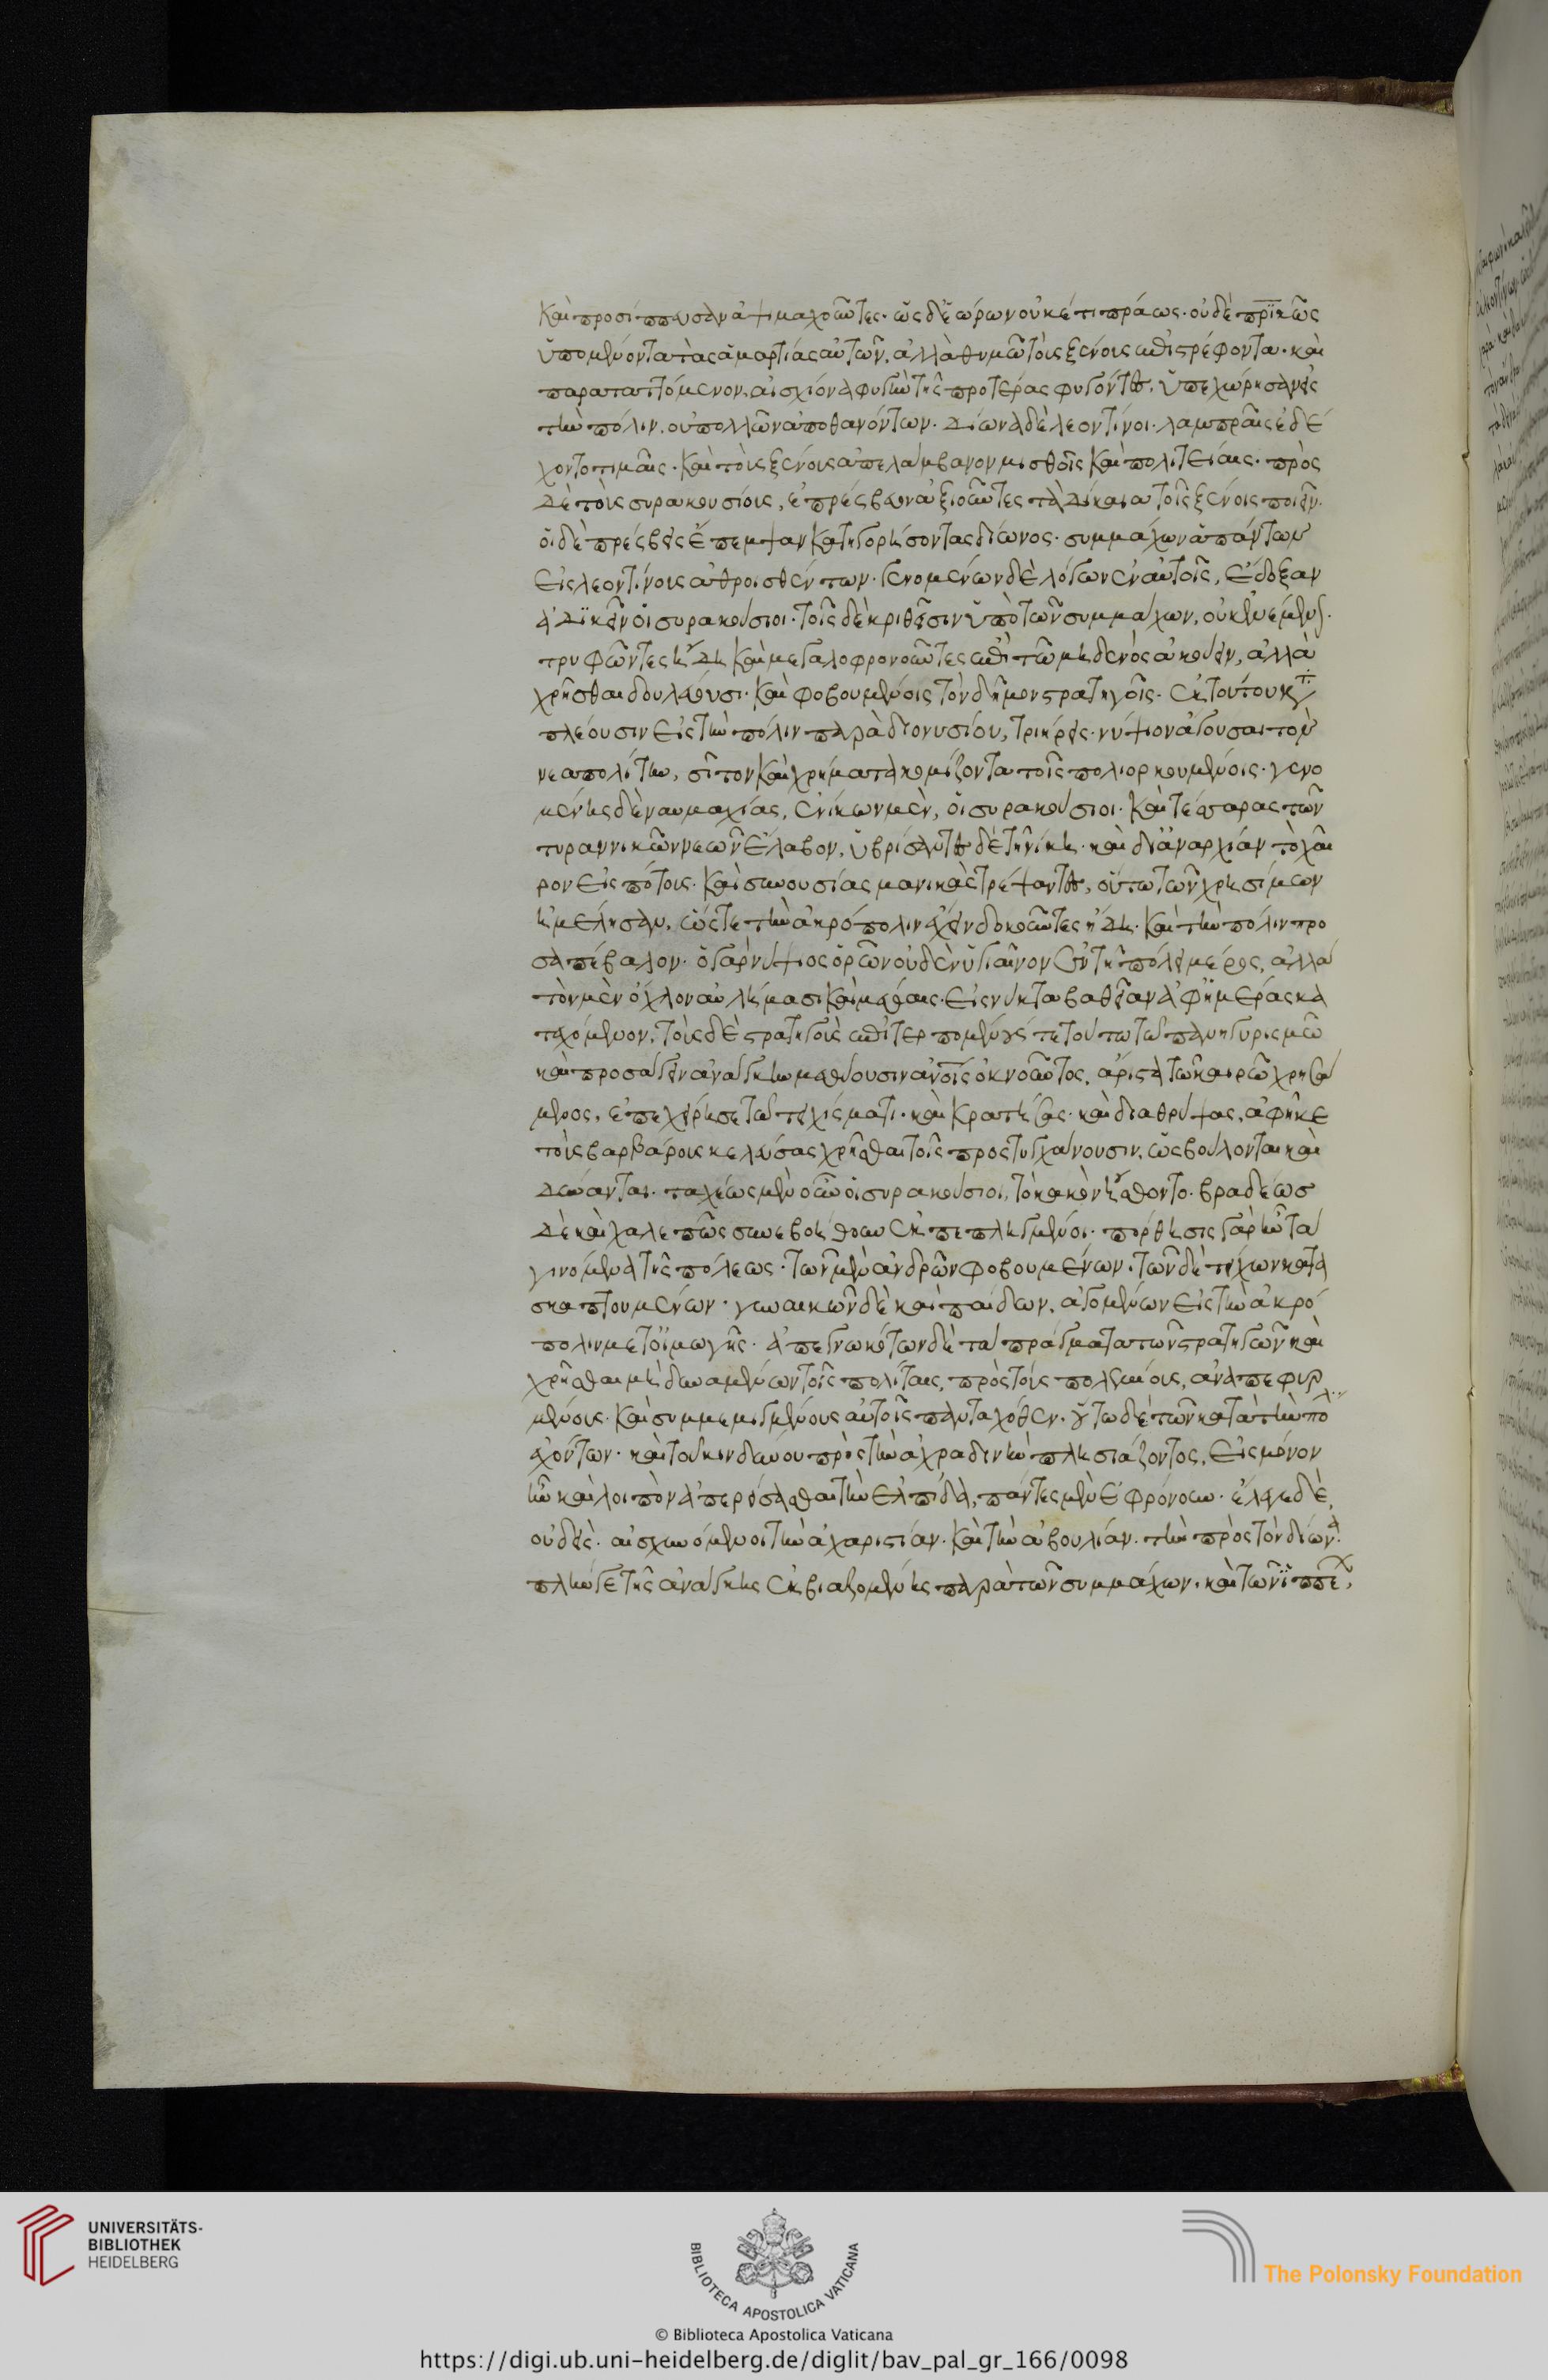 καὶ προσίππευσαν ἁψιμαχοῦντες. ὡς δὲ ἑώρων οὐκέτι πράως. οὐδὲ πρϊκῶς
ὑπομένοντα τὰς ἁμαρτίας αὐτῶν, ἀλλὰ θυμῶ τοὺς ξένους ἐπιστρέφοντα. καὶ
παραταττόμενον, αἰσχίονα φυγὴν τῆς προτέρας φυγόντες, ὑπεχώρησαν εἰς
τὴν πόλιν. οὐ πολλῶν ἀποθανόντων. Δίωνα δὲ λεοντίνοι. λαμπραῖς ἐδέ
χοντο τιμαῖς. καὶ τοὺς ξένους ἀπελάμβανον μισθοῖς καὶ πολιτείαις. πρὸς
δὲ τοὺς συρακουσίους, ἐπρέσβευον ἀξιοῦντες τὰ δίκαια τοῖς ξένοις ποιεῖν.
οἱ δὲ πρέσβεις ἔπεμψαν κατηγορήσοντας δίωνος. συμμάχων ἁπάντων
εἰς λεοντίνους ἀθροισθέντων. γενομένων δὲ λόγων ἐν αὐτοῖς, ἔδοξαν
ἀδϊκεῖν οἱ συρακούσιοι. τοῖς δὲ κριθεῖσιν ὑπὸ τῶν συμμάχων, οὐκ ἐνέμενον.
τρυφῶντες ἤδη καὶ μεγαλοφρονοῦντες ἐπὶ τῶ μηδενὸς ἀκούειν, ἀλλὰ
χρῆσθαι δουλεύουσι. καὶ φοβουμένοις τὸν δῆμον στρατηγοῖς. ἐκ τούτου κατα
πλέουσιν εἰς τὴν πόλιν παρὰ διονυσίου, τριήρεις. νύψιον ἄγουσαι τὸν
νεαπολίτην, σῖτον καὶ χρήματα κομίζοντα τοῖς πολιορκουμένοις. γενο
μένης δὲ ναυμαχίας, ἐνίκων μὲν, οἱ συρακούσιοι. καὶ τέσσαρας τῶν
τυραννικῶν νεῶν ἔλαβον, ὑβρίσαντες δὲ τῆ νίκη. καὶ δι' ἀναρχίαν τὸ χαῖ
ρον εἰς πότους. καὶ συνουσίας μανικὰς τρέψαντες, οὕτω τῶν χρησίμων
ἠμέλησαν, ὥστε τὴν ἀκρόπολιν ἔχειν δοκοῦντες ἤδη. καὶ τὴν πόλιν προ
σαπέβαλον. ὁ γὰρ νύψιος ὁρῶν οὐδὲν ὑγιαῖνον ἐν τῆ πόλει μέρος, ἀλλὰ
τὸν μὲν ὄχλον αὐλήμασι καὶ μέθαις. εἰς νύκτα βαθεῖαν ἀφ' ἡμέρας κα
τεχόμενον, τοὺς δὲ στρατηγοὺς ἐπιτερπομένους τε τούτω τῶ πανηγυρισμῶ
καὶ προσάγειν ἀνάγκην μεθύουσιν ἀνοῖς ὀκνοῦντος, ἄριστα τῶ καιρῶ χρησά
μενος, ἐπεχείρησε τῶ τειχίσματι. καὶ κρατήσας. καὶ διαθρύψας, ἀφῆκε
τοὺς βαρβάρους κελεύσας χρῆσθαι τοῖς προστυγχάνουσιν, ὡς βούλονται καὶ
δύνανται. ταχέως μὲν οὖν οἱ συρακούσιοι, τὸ κακὸν ἤσθοντο. βραδέως
δὲ καὶ χαλεπῶς συνεβοήθουν ἐκπεπληγμένοι. πόρθησις γὰρ ἦν τὰ
γινόμενα τῆς πόλεως. τῶν μὲν ἀνδρῶν φοβουμένων. τῶν δὲ τειχῶν κατα
σκαπτουμένων. γυναικῶν δὲ καὶ παίδων, ἀγομένων εἰς τὴν ἀκρό
πολιν μετ' οἰμωγῆς. ἀπεγνωκότων δὲ τὰ πράγματα τῶν στρατηγῶν καὶ
χρῆσθαι μὴ δυναμένων τοῖς πολίταις, πρὸς τοὺς πολεμίους, ἀναπεφυρ
μένοις. καὶ συμμεμιγμένους αὐτοῖς πανταχόθεν. οὕτω δὲ τῶν κατὰ τὴν πόλιν
ἐχόντων. καὶ τοῦ κινδύνου πρὸς τὴν ἀχραδινὴν πλησιάζοντος, εἰς μόνον
ἦν καὶ λοιπὸν ἀπερείσασθαι τὴν ἐλπίδα, πάντες μὲν ἐφρόνουν. ἔλεγε δὲ
οὐδεὶς. αἰσχυνόμενοι τὴν ἀχαριστίαν. καὶ τὴν ἀβουλίαν. τὴν πρὸς τὸν δίωνα.
πλὴν γε τῆς ἀνάγκης ἐκβιαζομένης παρὰ τῶν συμμάχων. καὶ τῶν ἱππέ,
UNIVERSITÄTS-
BIBLIOTHEK
HEIDELBERG
BIBLIOTECA APOSTOLICA VATICANA
The Polonsky Foundation
© Biblioteca Apostolica Vaticana
https://digi.ub.uni-heidelberg.de/diglit/bav_pal_gr_166/0098